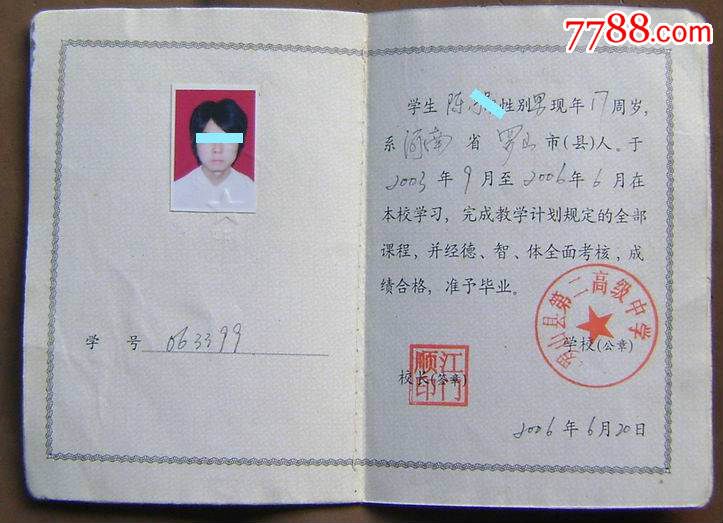 7788.com
学生 陈 性别 男 现年 17 周岁,
系 河南 省 罗山 市(县)人。于
2003 年 9 月至 2006 年 6 月在
本校学习,完成教学计划规定的全部
课程,并经德、智、体全面考核,成
绩合格,准予毕业。
罗山县第二高级中学
学校(公章)
江门顺印
校长(签章)
2006 年 6 月 20 日
学 号 063399